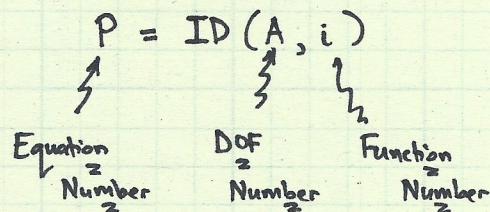 P = ID (A, i)
Equation Number
DOF Number
Function Number